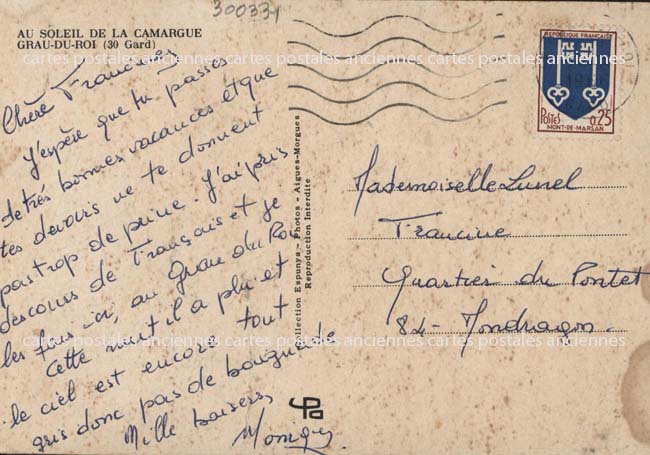 300331
AU SOLEIL DE LA CAMARGUE
GRAU-DU-ROI (30 Gard)
Chère Francine,
J'espère que tu passes
de très bonnes vacances et que
tes devoirs ne te donnent
pas trop de peine. J'ai pris
des cours de Français et je
les fais ici, au Grau du Roi
Cette nuit il a plu et
le ciel est encore tout
gris donc pas de baignade
Mille baisers,
Monique
Collection Espunya - Photos - Aigues-Morgues
Reproduction Interdite
REPUBLIQUE FRANÇAISE
POSTES
0,25
MONT-DE-MARSAN
Mademoiselle Lunel
Francine
Quartier du Pontet
84 - Mondragon.
cartes postales anciennes cartes postales anciennes cartes postales anciennes
cartes postales anciennes cartes postales anciennes cartes postales anciennes